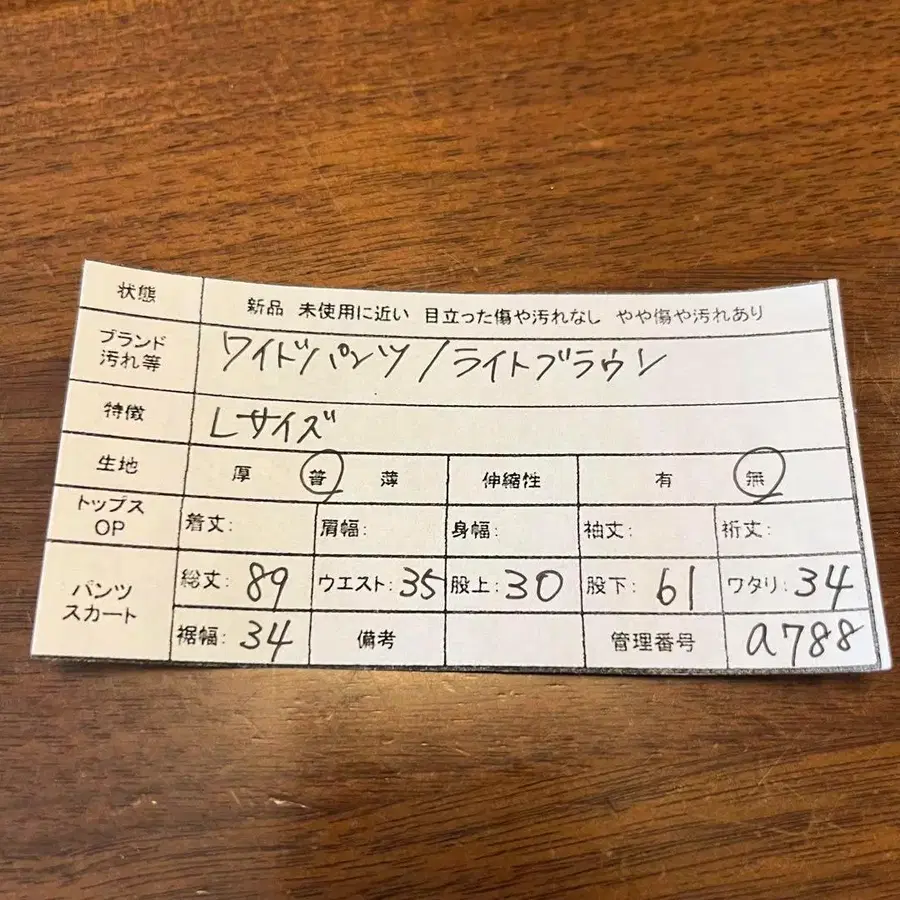 状態 新品 未使用に近い 目立った傷や汚れなし やや傷や汚れあり
ブランド
汚れ等
ワイドパンツ/ライトブラウン
特徴 Lサイズ
生地 厚 普 薄 伸縮性 有 無
トップス
OP
着丈: 肩幅: 身幅: 袖丈: 裄丈:
パンツ
スカート
総丈: 89 ウエスト: 35 股上: 30 股下: 61 ワタリ: 34
裾幅: 34 備考 管理番号 a788